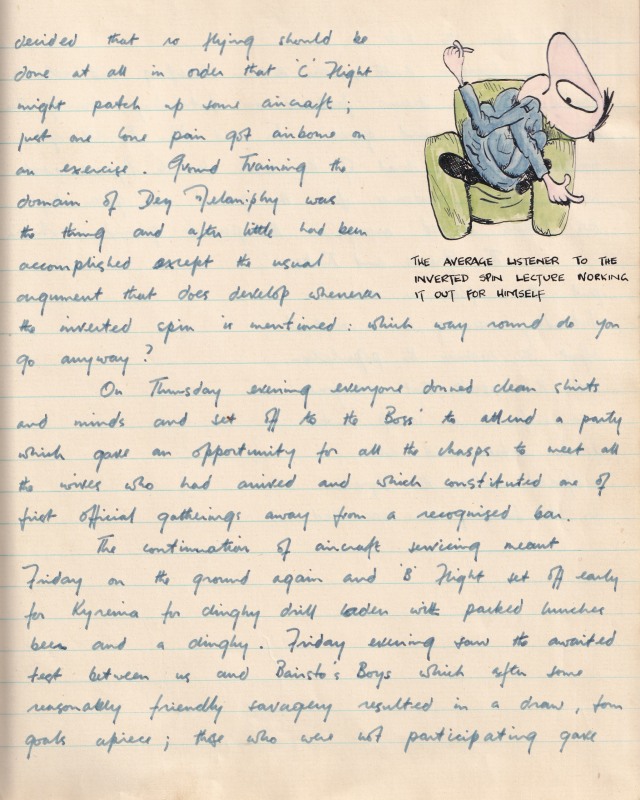 decided that no flying should be
done at all in order that 'C' Flight
might patch up some aircraft;
just one lone pair got airborne on
an exercise. Ground Training the
domain of Des Melaniphy was
the thing and after little had been
accomplished except the usual
argument that does develop whenever
the inverted spin is mentioned: which way round do you
go anyway?
On Thursday evening everyone donned clean shirts
and minds and set off to the Boss' to attend a party
which gave an opportunity for all the chaps to meet all
the wives who had arrived and which constituted one of
first official gatherings away from a recognised bar.
The continuation of aircraft servicing meant
Friday on the ground again and 'B' Flight set off early
for Kyrenia for dinghy drill laden with packed lunches
beer and a dinghy. Friday evening saw the awaited
test between us and Bairsto's Boys which after some
reasonably friendly savagery resulted in a draw, four
goals apiece; those who were not participating gave
THE AVERAGE LISTENER TO THE
INVERTED SPIN LECTURE WORKING
IT OUT FOR HIMSELF